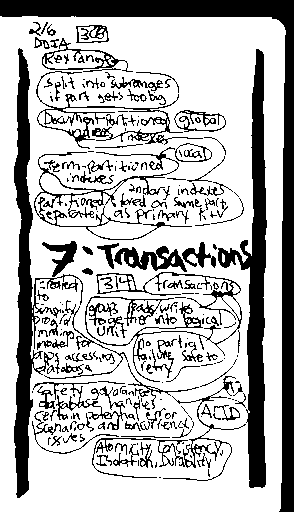 2/6
DDIA
Key range
Split into subranges
if part gets too big
Document-partitioned
indexes
global
indexes
local
Term-partitioned
indexes
partitioned
separately
indary indexes
stored on same part
as primary K+V
7: Transactions
314
transactions
created
to
simplify
progra
mming
model for
apps accessing
database
groups reads/writes
together into logical
unit
no partial
failure, safe to
retry
Safety guarantees
database handles
certain potential error
scenarios and concurrency
issues
ACID
Atomicity, Consistency,
Isolation, Durability